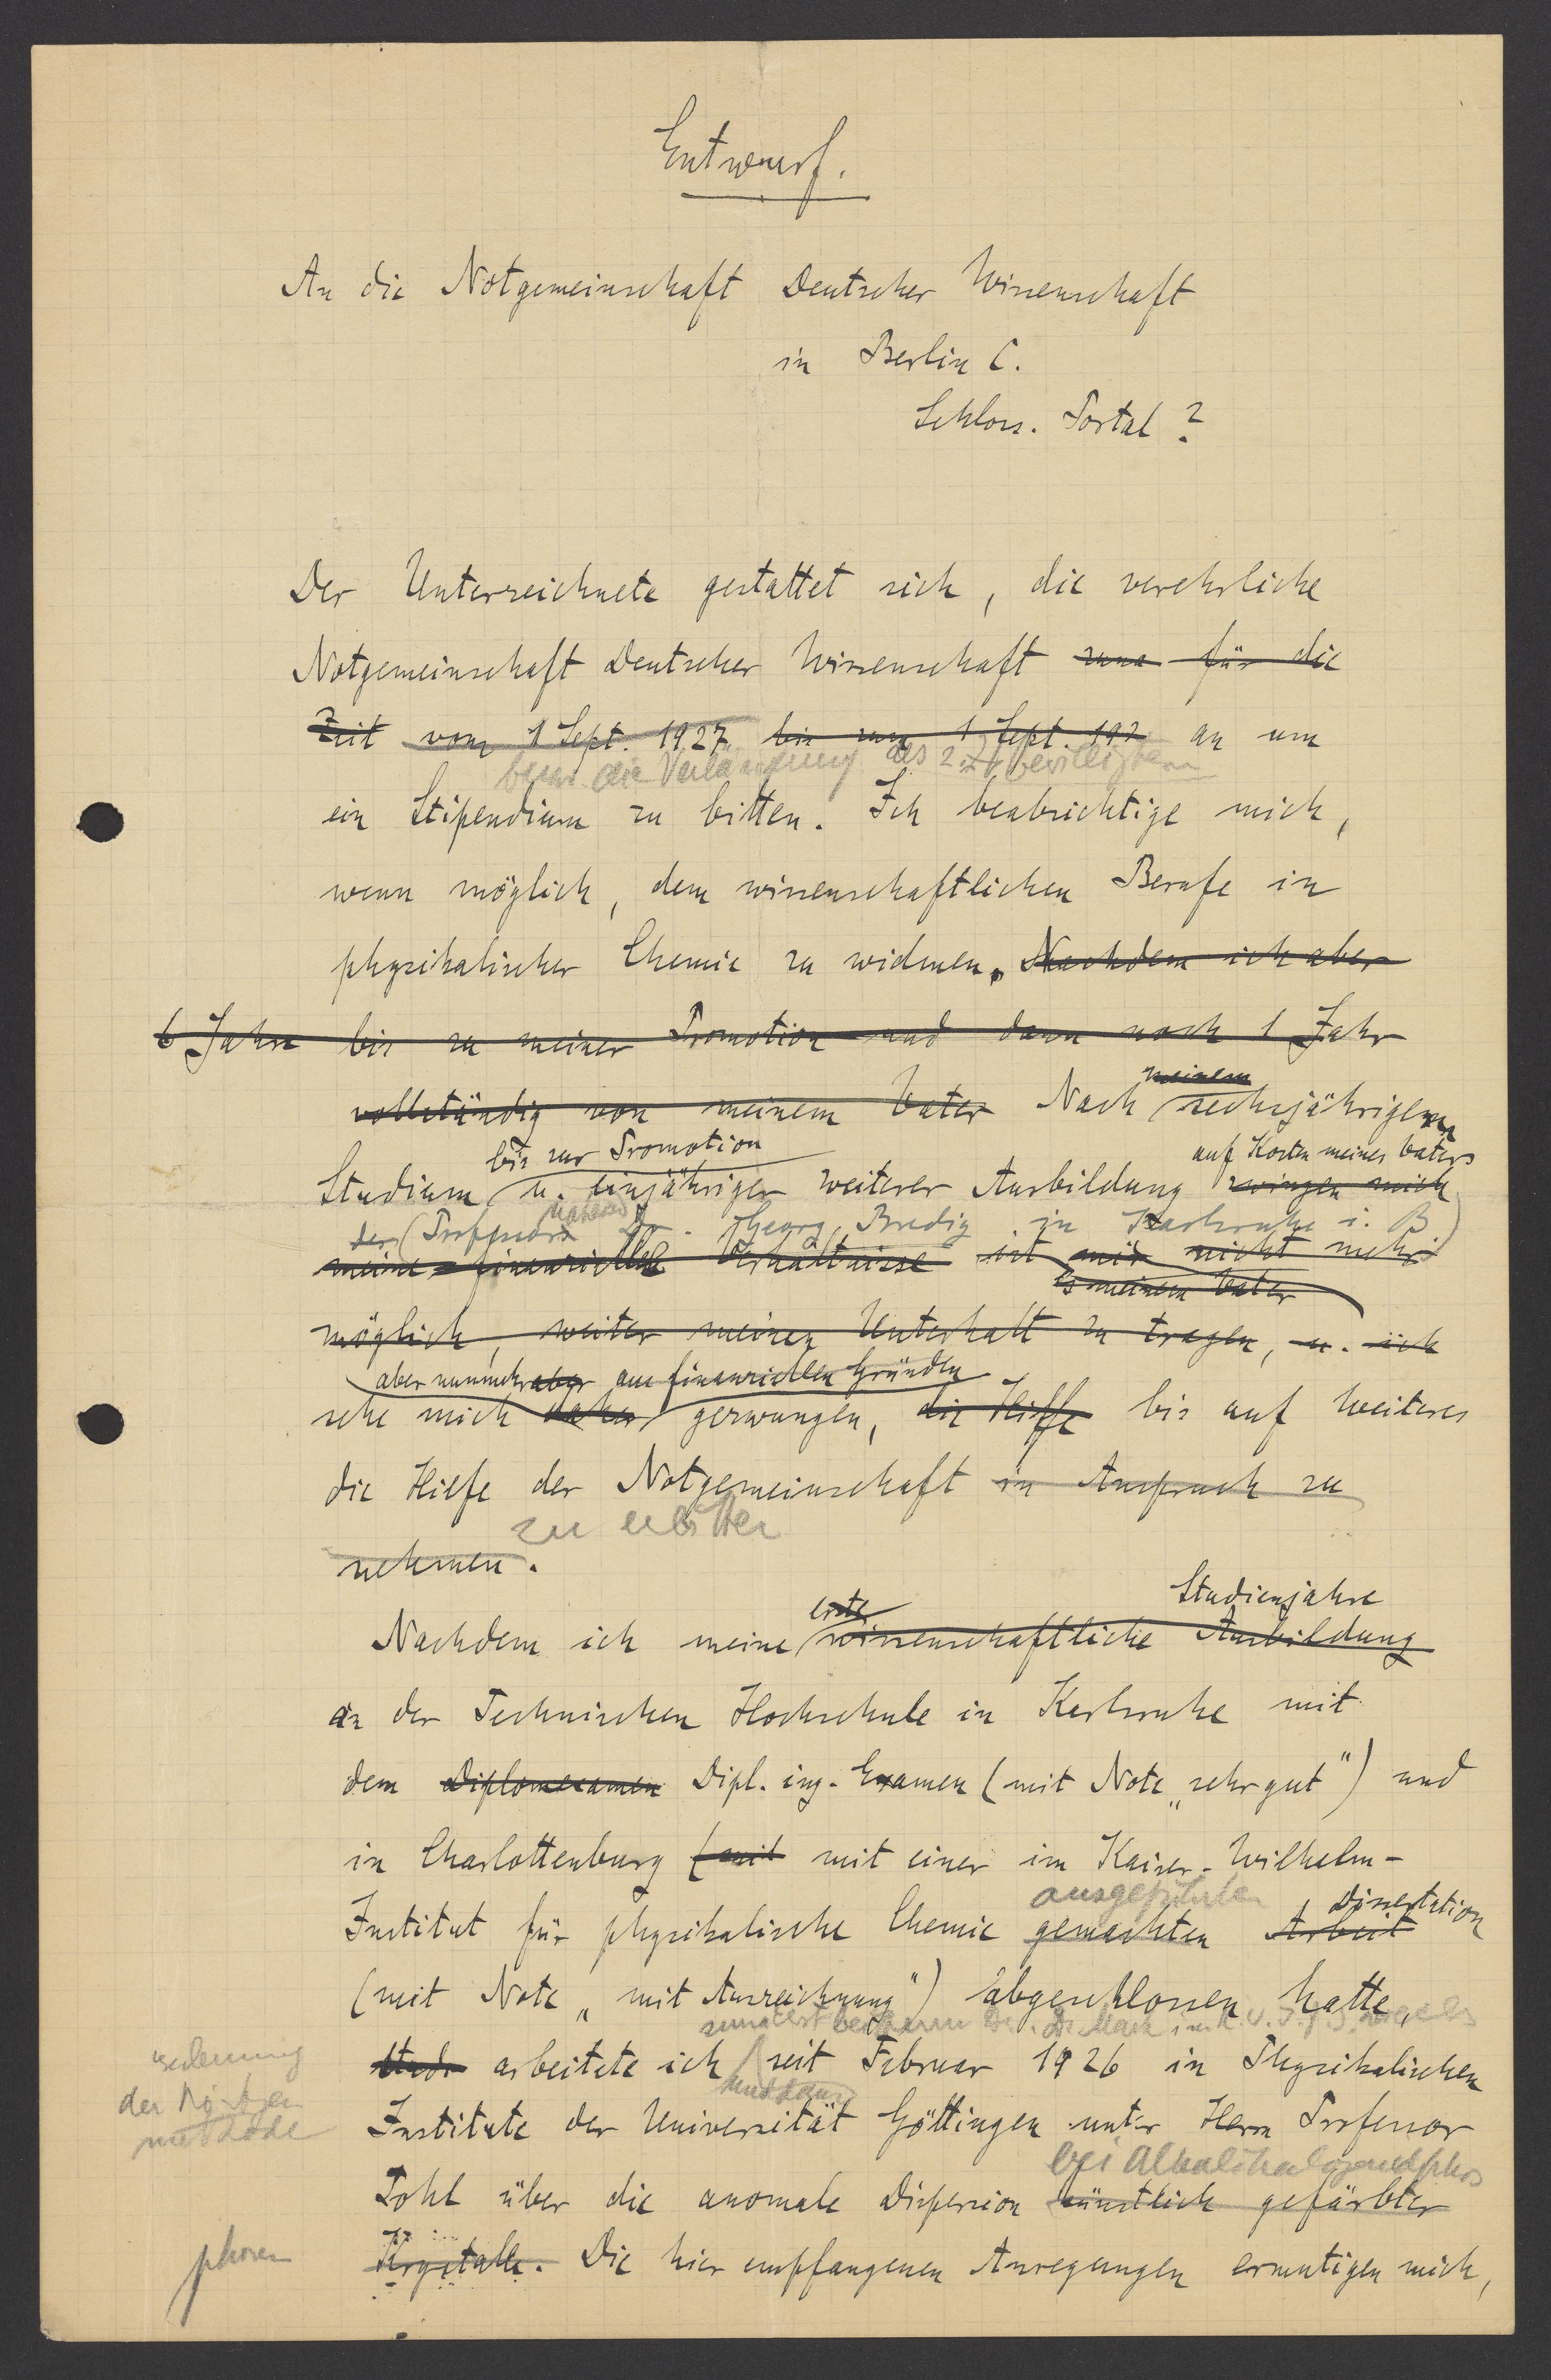 Entwurf.
An die Notgemeinschaft Deutscher Wissenschaft
in Berlin C.
Schloss. Portal ?
Der Unterzeichnete gestattet sich, die verehrliche
Notgemeinschaft Deutscher Wissenschaft für die
Zeit vom 1 Sept. 1927 bis zum 1 Sept. 192 an um
bezw. die Verlängerung des z. Zt bewilligten
ein Stipendium zu bitten. Ich beabsichtige mich,
wenn möglich, dem wissenschaftlichen Berufe in
physikalischer Chemie zu widmen. Nachdem ich aber
6 Jahre bis zu meiner Promotion und dann noch 1 Jahr
meinem
vollständig von meinem Vater Nach sechsjährigem
bis zur Promotion auf Kosten meines Vaters
Studium u. einjähriger weiterer Ausbildung zwingen mich
der (Professors Dr. Georg Bredig in Karlsruhe i. B)
meine finanziellen Verhältnisse ist mir nicht mehr
es meinem Vater
möglich, weiter meinen Unterhalt zu tragen, u. ich
aber nunmehr aber aus finanziellen Gründen
sehe mich daher gezwungen, die Hilfe bis auf Weiteres
die Hilfe der Notgemeinschaft in Anspruch zu
zu erbitten
nehmen.
erste Studienjahre
Nachdem ich meine wissenschaftliche Ausbildung
an der Technischen Hochschule in Karlsruhe mit
dem Diplomexamen Dipl. ing. Examen (mit Note „sehr gut") und
in Charlottenburg (mit mit einer im Kaiser-Wilhelm-
ausgeführten Dissertation
Institut für physikalische Chemie gemachten Arbeit
(mit Note „mit Auszeichnung") abgeschlossen hatte,
zunächst bei Herrn Dr. Mark im K. W. I. f.
arbeitete ich seit Februar 1926 in Physikalischen
und dann
der Röntgen
methode
Institute der Universität Göttingen unter Herrn Professor
bei Alkalihalogenidphos
Pohl über die anomale Dispersion künstlich gefärbter
phoren
Krystalle. Die hier empfangenen Anregungen ermutigen mich,